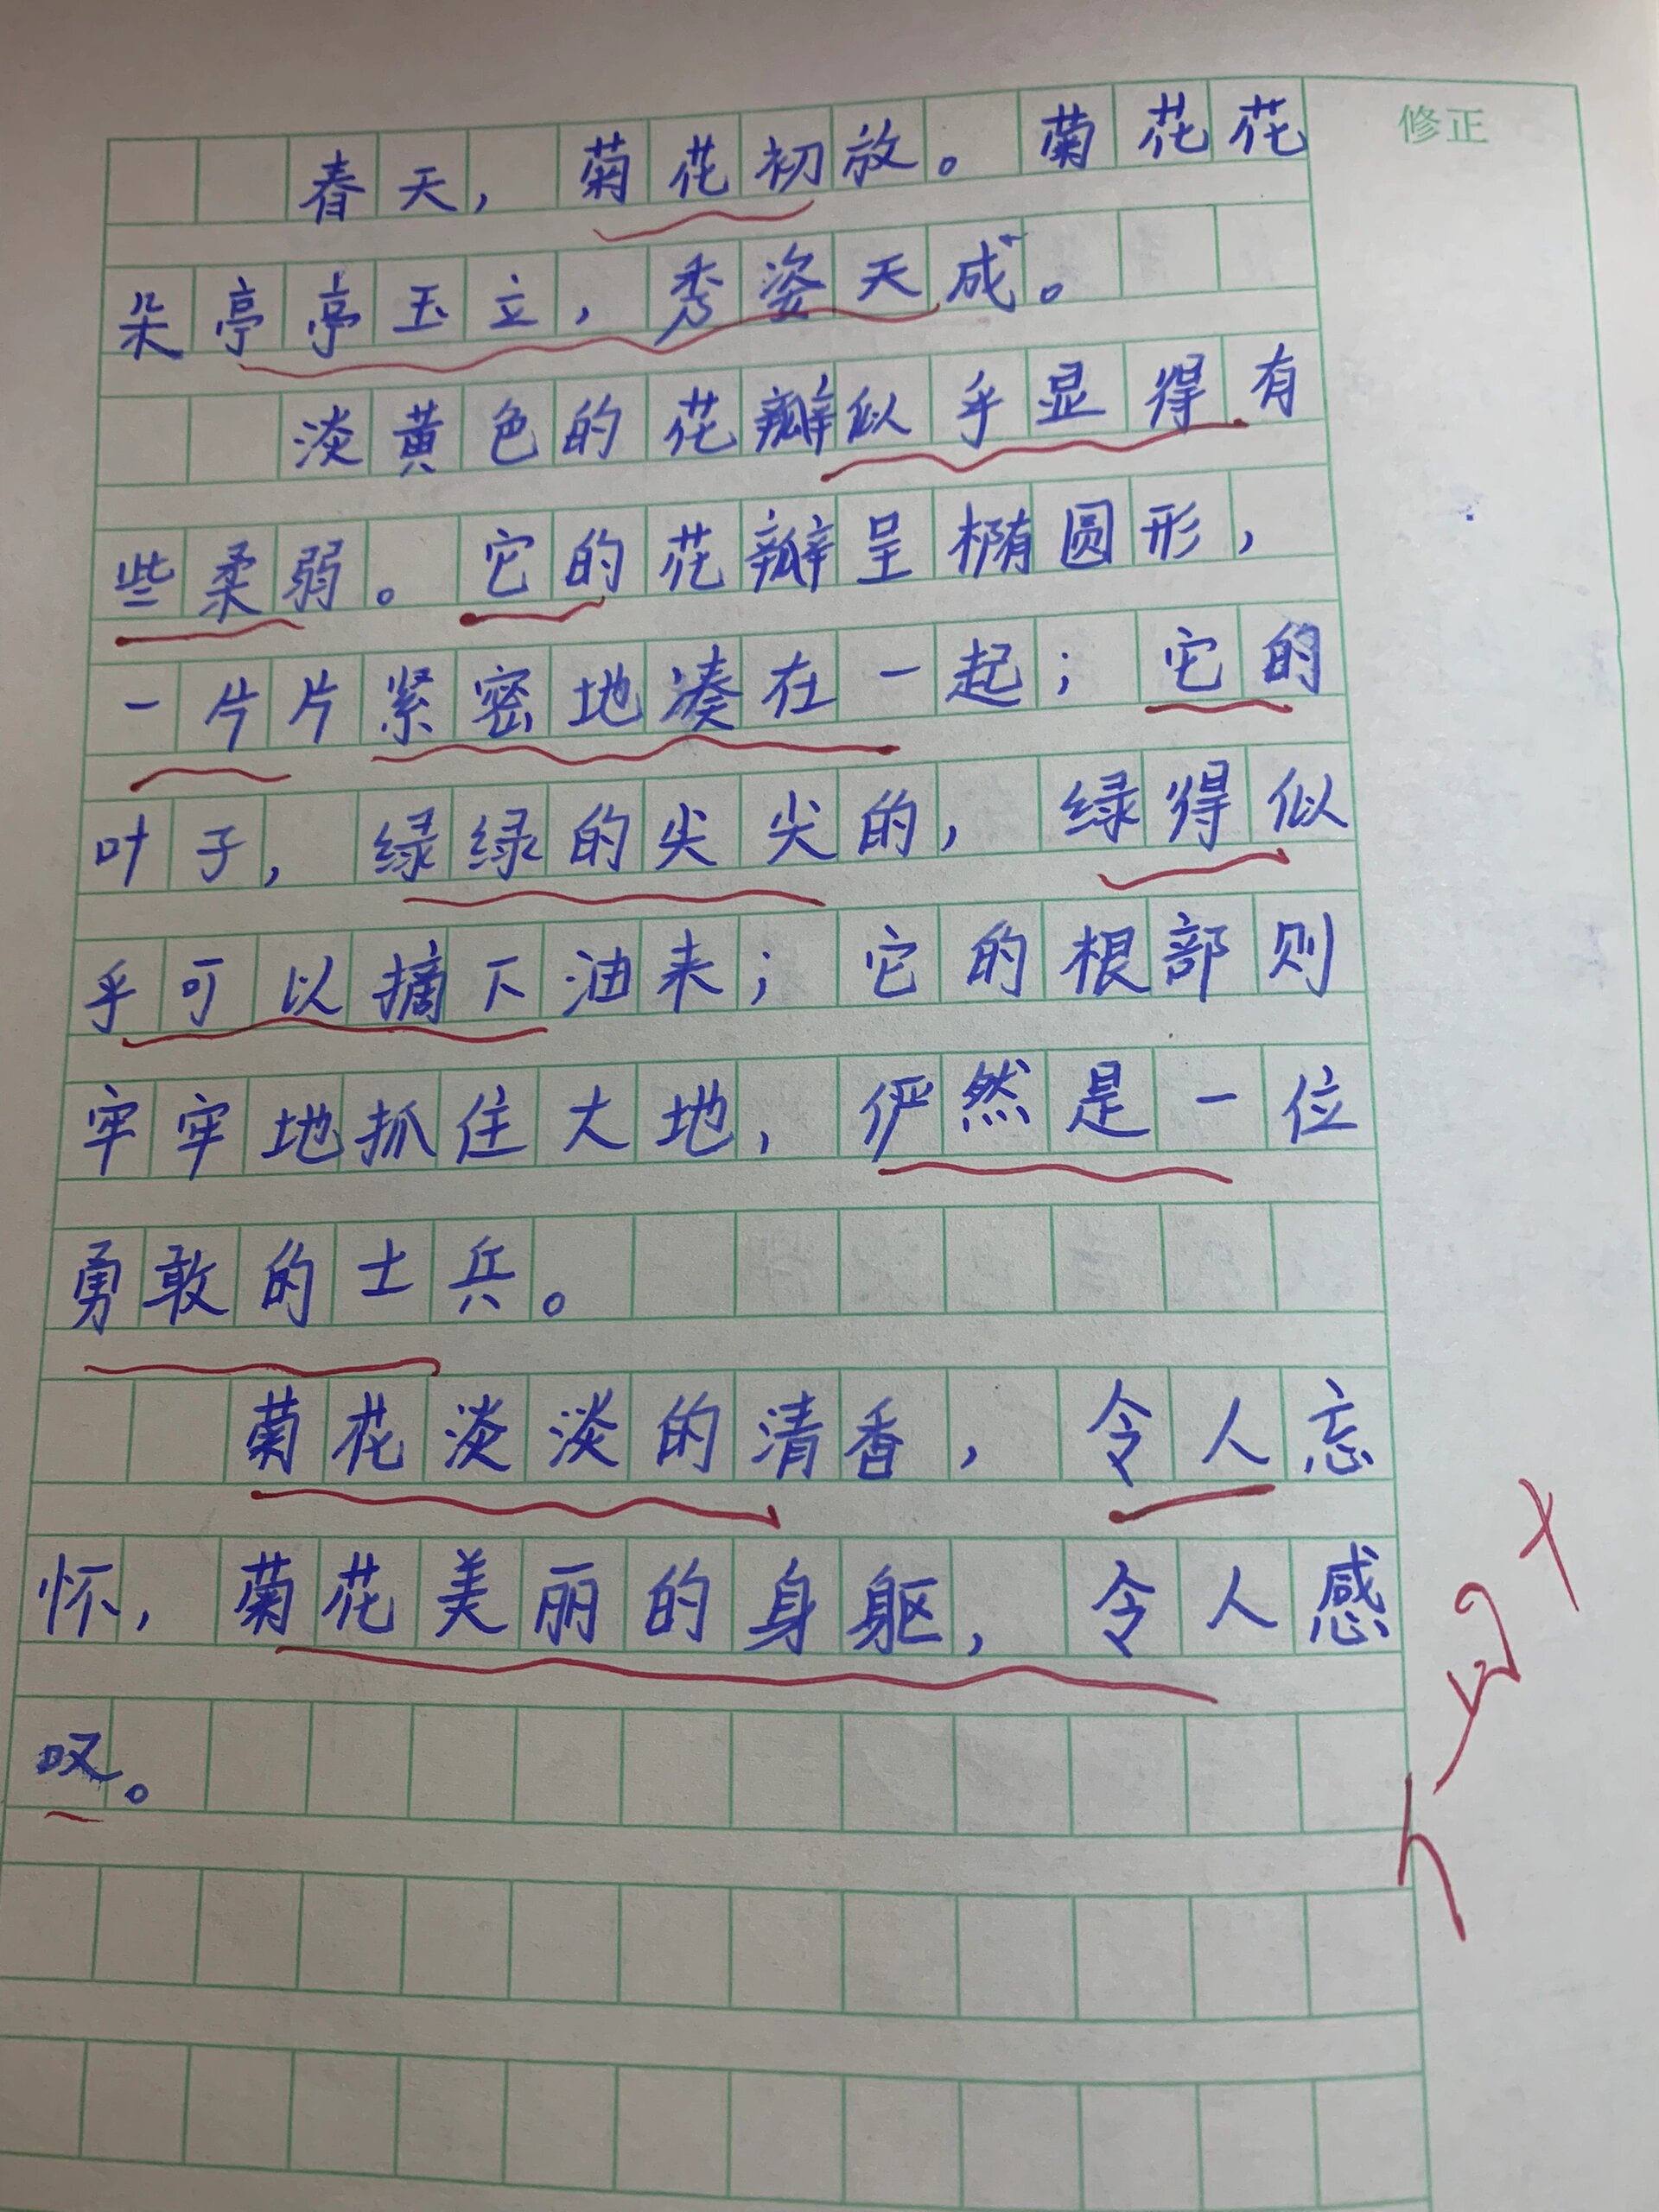 修正
春天，菊花初放。菊花花
朵亭亭玉立，秀姿天成。
淡黄色的花瓣似乎显得有
些柔弱。它的花瓣呈椭圆形，
一片片紧密地凑在一起；它的
叶子，绿绿的尖尖的，绿得似
乎可以摘下油来；它的根部则
牢牢地抓住大地，俨然是一位
勇敢的士兵。
菊花淡淡的清香，令人忘
怀，菊花美丽的身躯，令人感
叹。